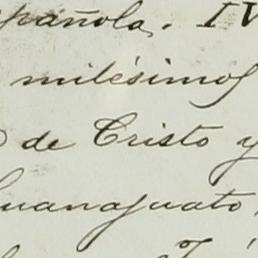 española. IV
milésimos
de Cristo y
Guanajuato,